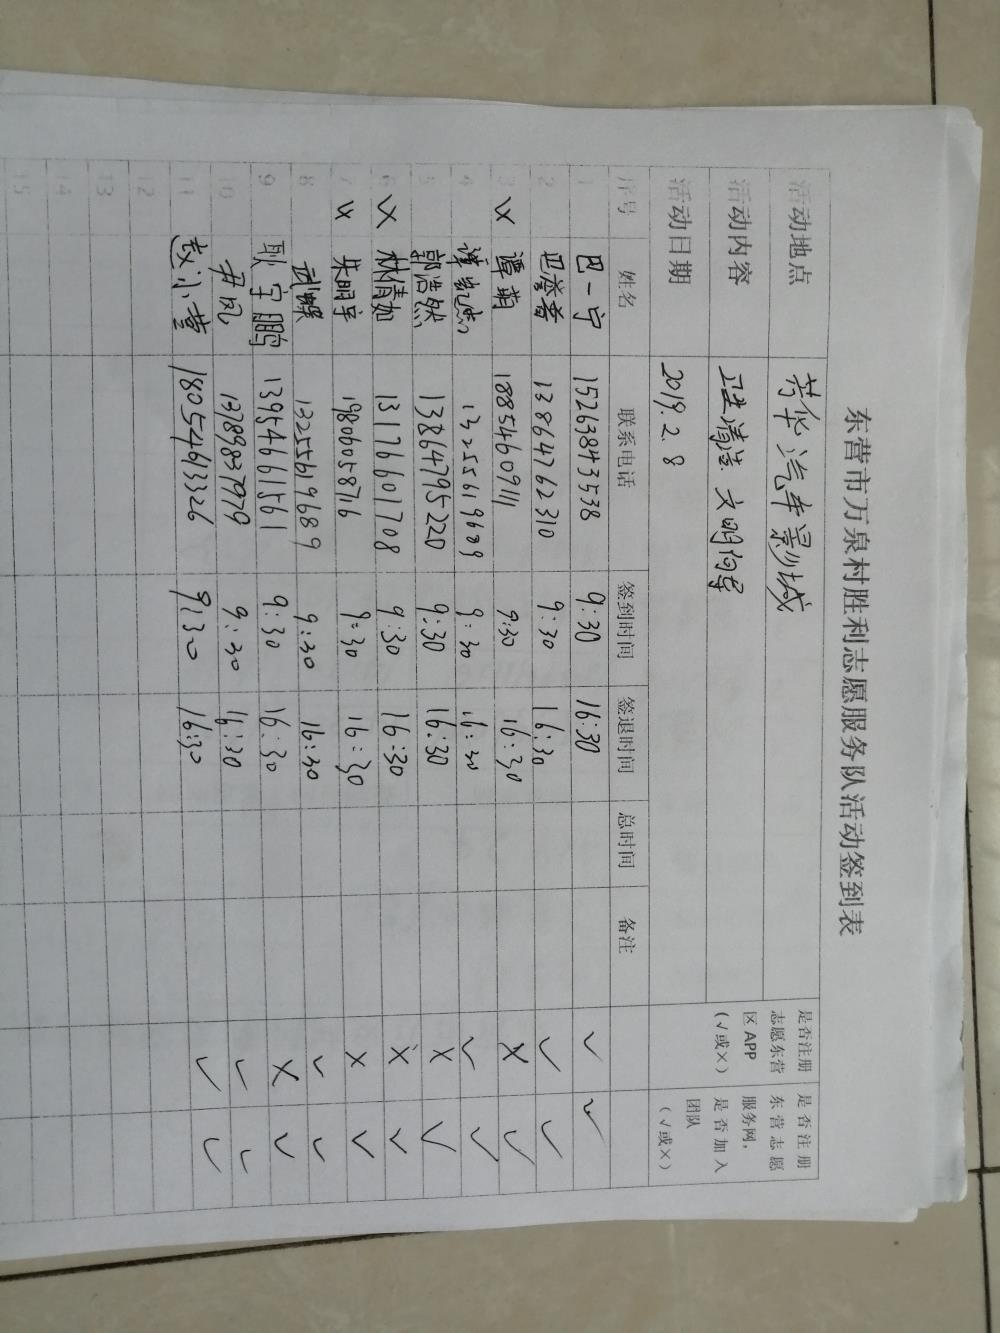 东营市万泉村胜利志愿服务队活动签到表
活动地点 芳华汽车影城
活动内容 卫生清洁 文明向导
活动日期 2019.2.8
是否注册志愿东营区APP(√或×)
是否注册东营志愿服务网,是否加入团队(√或×)
序号 姓名 联系电话 签到时间 签退时间 总时间 备注
1 巴一宁 15263843538 9:30 16:30 √ √
2 13864762310 9:30 16:30 √ √
3 × 谭萌 18854609111 9:30 16:30 × √
4 13255619689 9:30 16:30 √ √
5 郭浩然 13864795220 9:30 16:30 × √
6 × 林倩如 13176601708 9:30 16:30 × √
7 × 朱明宇 19806058716 9:30 16:30 × √
8 13255619689 9:30 16:30 √ √
9 耿宇鹏 13954661561 9:30 16:30 × √
10 尹风 13789837979 9:30 16:30 √ √
11 赵小营 18054613326 9:30 16:30 √ √
12
13
14
15